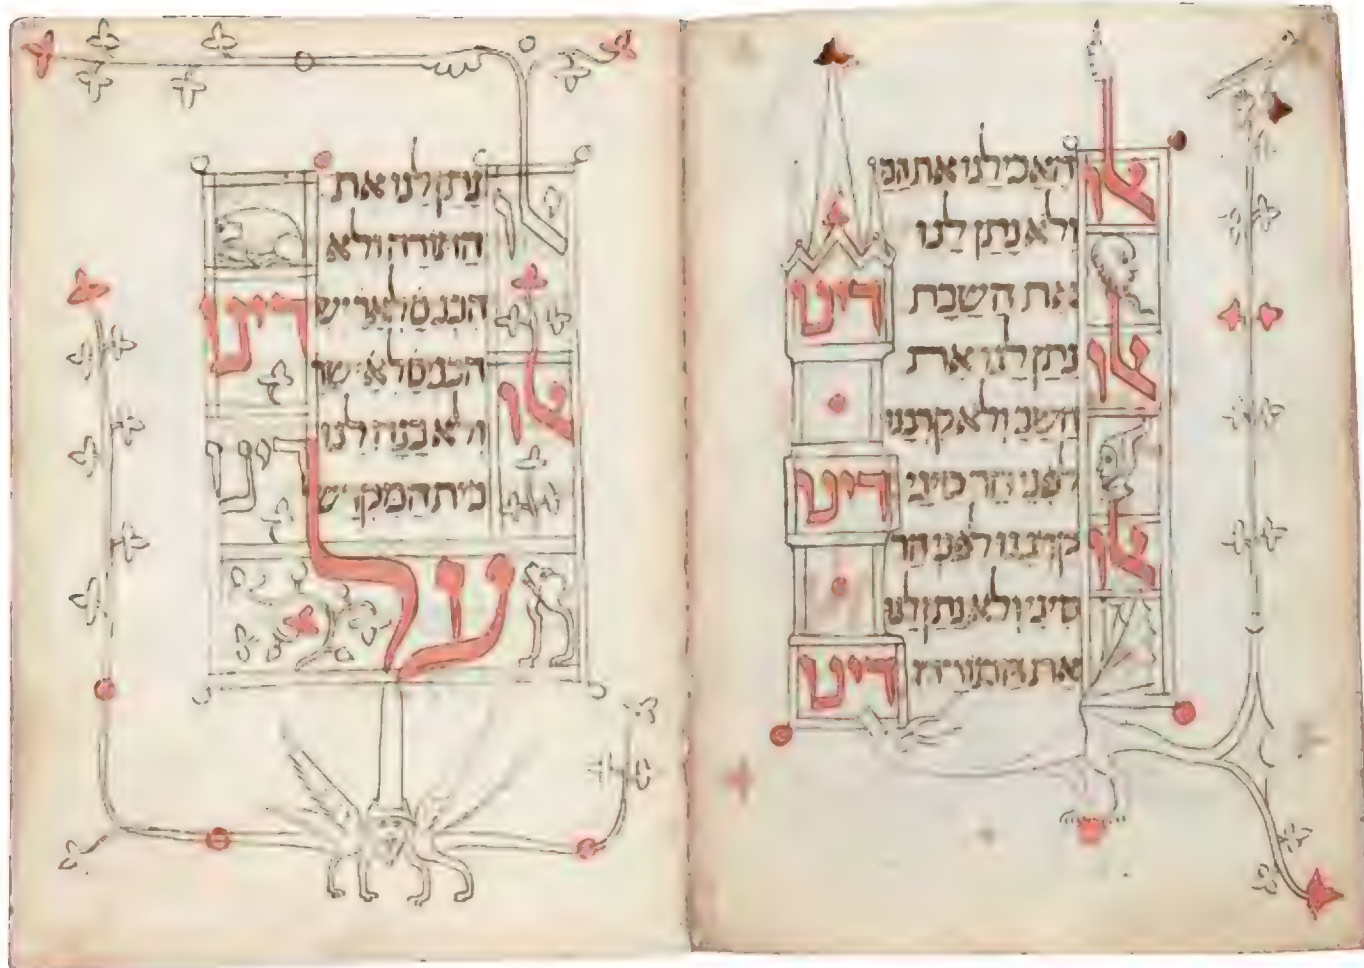 אלו האכילנו את המן
ולא נתן לנו
את השבת דינו
אלו נתן לנו את
השבת ולא קרבנו
לפני הר סיני דינו
אלו קרבנו לפני הר
סיני ולא נתן לנו
את התורה דינו
אלו נתן לנו את
התורה ולא
הכנסנו לאר יש דינו
אלו הכנסנו לא יש
ולא בנה לנו
בית המק דינו
על